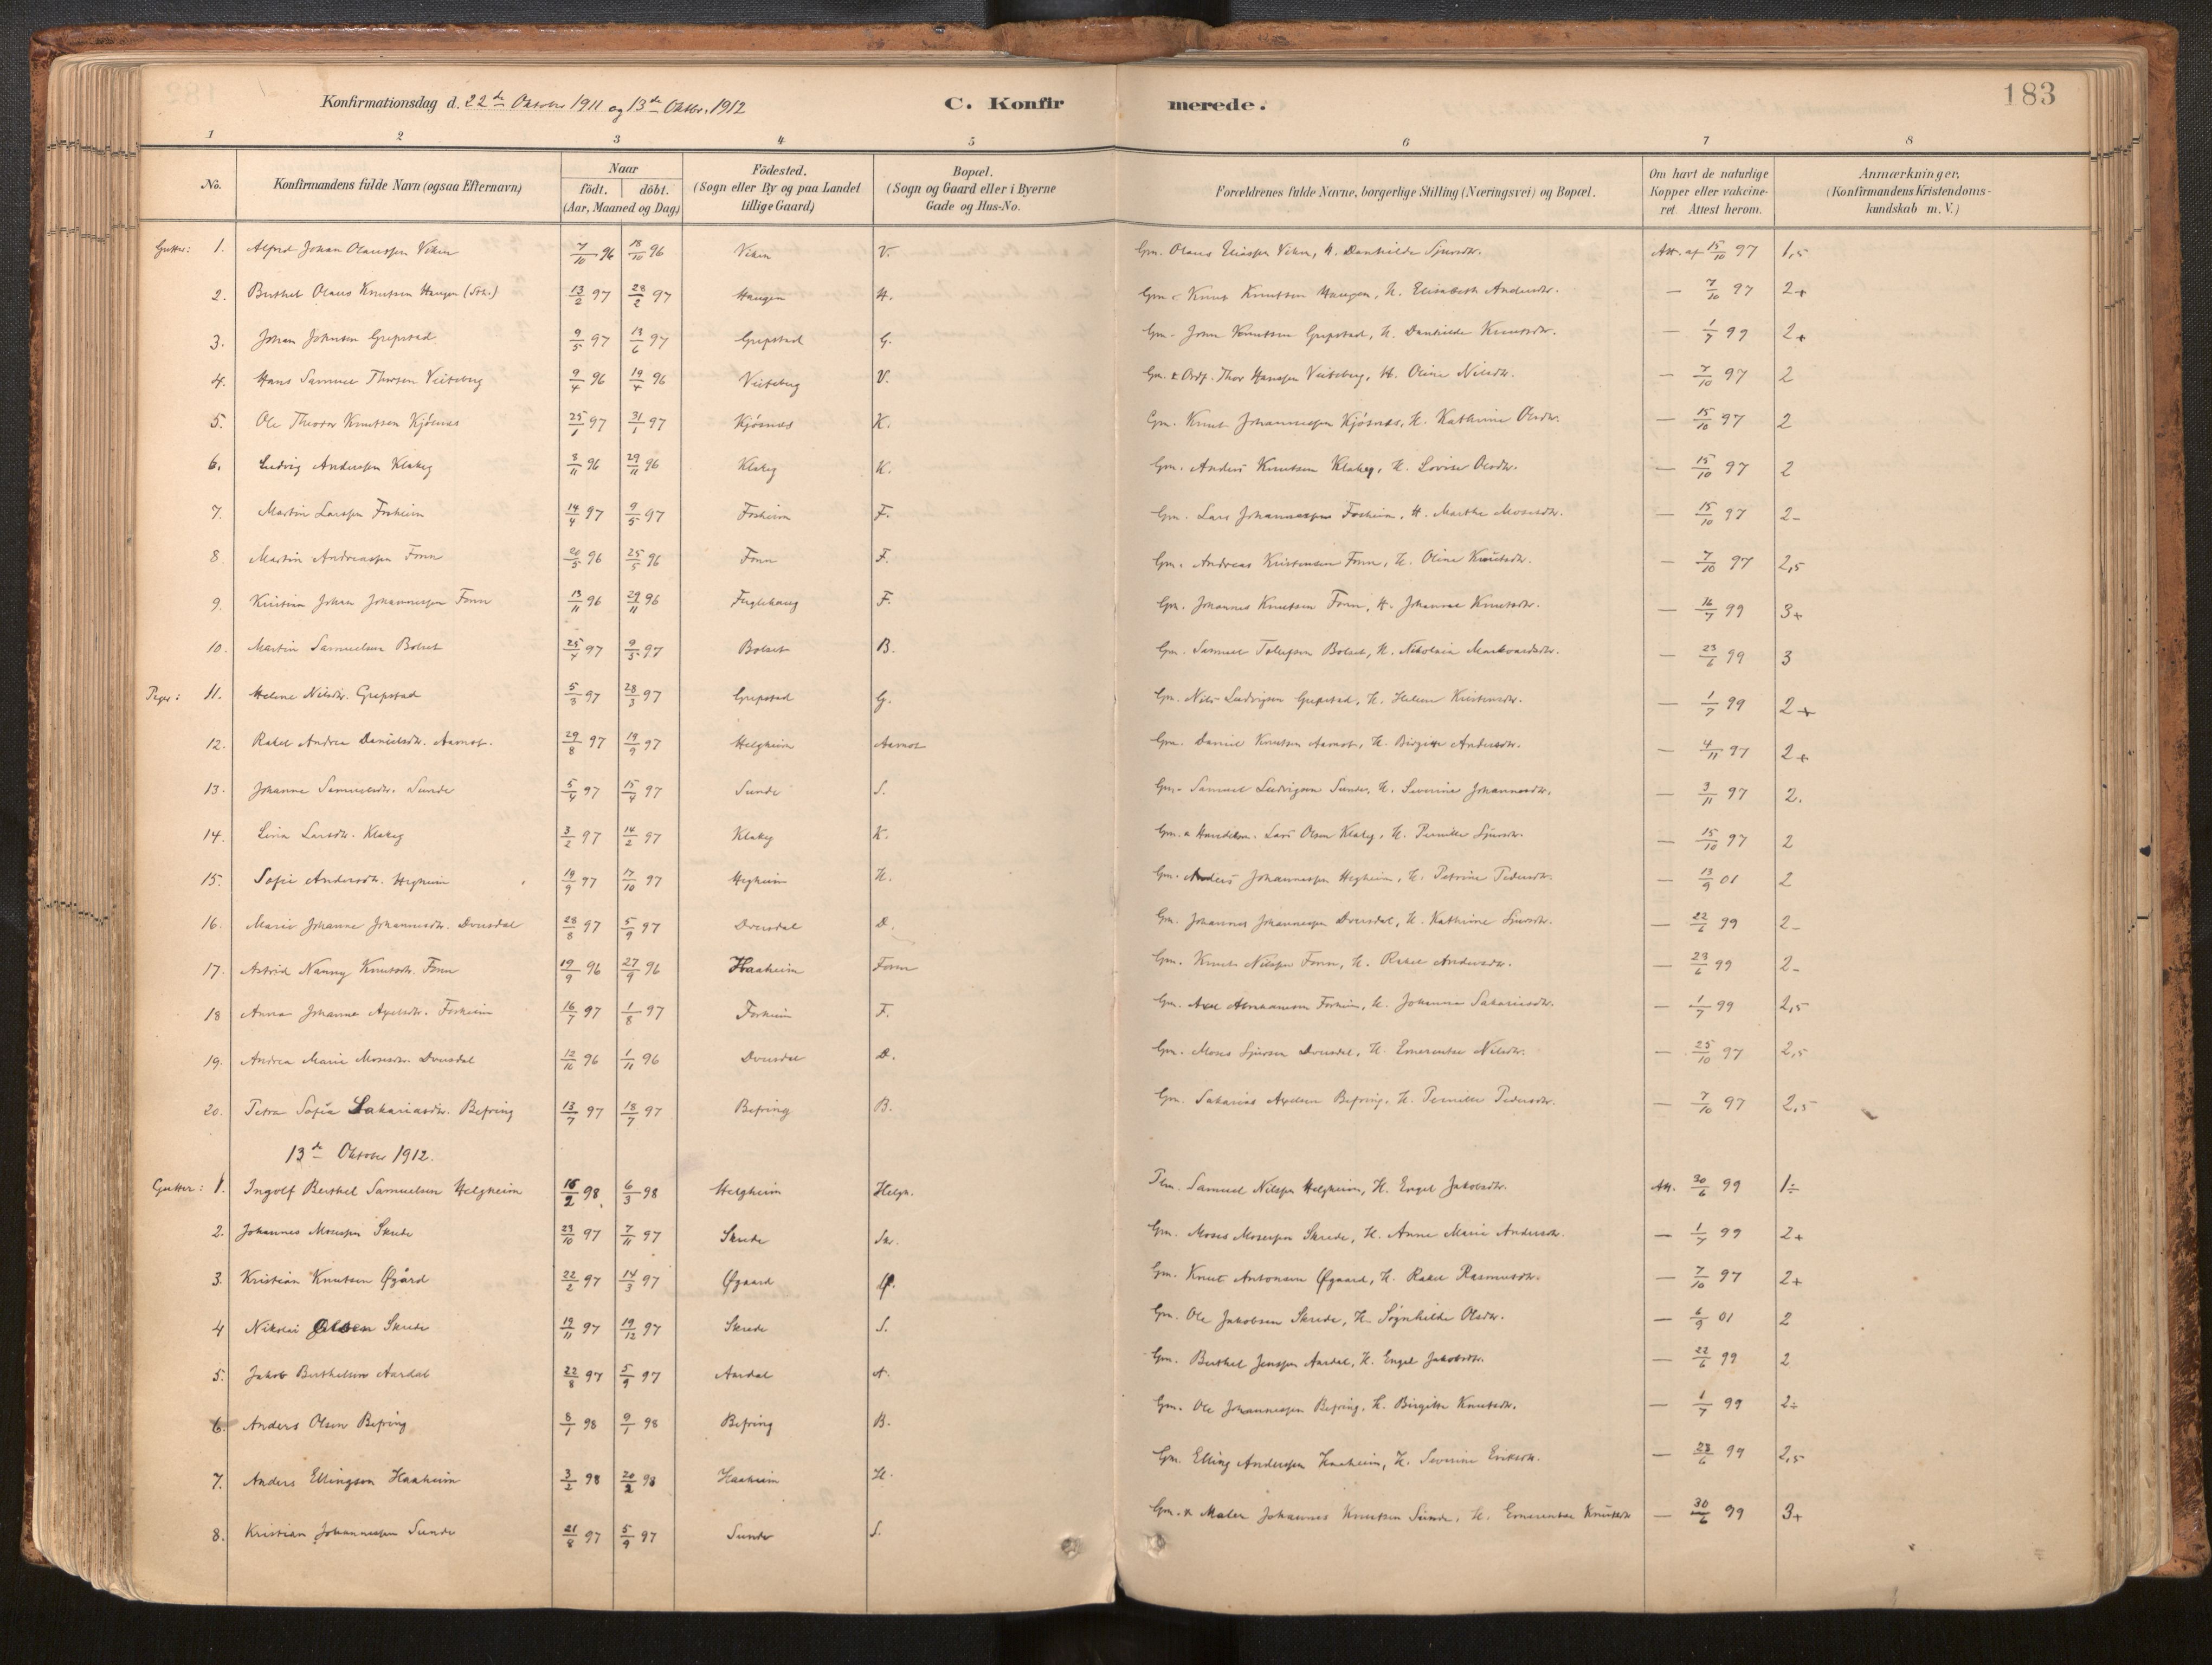 183
Konfirmationsdag d. 22de Oktober 1911 og 13de Oktbr. 1912 C. Konfirmerede.
1 2 3 4 5 6 7 8
No. Konfirmandens fulde Navn (ogsaa Efternavn) Naar födt. döbt. (Aar, Maaned og Dag) Födested. (Sogn eller By og paa Landet tillige Gaard) Bopæl. (Sogn og Gaard eller i Byerne Gade og Hus-No. Forældrenes fulde Navne, borgerlige Stilling (Næringsvei) og Bopæl. Om havt de naturlige Kopper eller vakcineret. Attest herom. Anmærkninger. (Konfirmandens Kristendomskundskab m. V.)
Gutter: 1. Alfred Johan Olaussen Viken 7/10 96 18/10 96 Viken V. Gm. Olaus Eliassen Viken, H. Danhilde Sjursdtr. Att. af 15/10 97 1,5
2. Berthel Olaus Knutsen Haugen 13/2 97 28/2 97 Haugen H. Gm. Knut Knutsen Haugen, H. Elisabeth Andersdtr. — 7/10 97 2+
3. Johan Johnsen Grepstad 9/5 97 13/6 97 Grepstad G. Gm. John Knutsen Grepstad, H. Danhilde Knutsdtr. — 1/7 99 2+
4. Hans Samuel Thorsen Veiteberg 9/4 96 19/4 96 Veiteberg V. Gm. & Ordf. Thor Hanssen Veiteberg, H. Oline Nilsdtr. — 7/10 97 2
5. Ole Theodor Knutsen Kjösnæs 25/1 97 31/1 97 Kjösnæs K. Gm. Knut Johannessen Kjösnæs, H. Kathrine Olsdtr. — 15/10 97 2
6. Ludvig Anderssen Klakeg 3/11 96 29/11 96 Klakeg K. Gm. Anders Knutsen Klakeg, H. Lovise Olsdtr. — 15/10 97 2
7. Martin Larssen Fosheim 14/4 97 9/5 97 Fosheim F. Gm. Lars Johannessen Fosheim, H. Marthe Mosesdtr. — 15/10 97 2-
8. Martin Andreassen Fonn 20/5 96 25/5 96 Fonn F. Gm. Andreas Kristensen Fonn, H. Oline Knutsdtr. — 7/10 97 2,5
9. Kristian Johan Johannessen Fonn 13/11 96 29/11 96 Fuglehaug F. Gm. Johannes Knutsen Fonn, H. Johanne Knutsdtr. — 16/7 99 3+
10. Martin Samuelsen Bolset 25/4 97 9/5 97 Bolset B. Gm. Samuel Tollefsen Bolset, H. Nikolaia Markvardsdtr. — 23/6 99 3
Piger: 11. Helene Nilsdtr. Grepstad 5/3 97 28/3 97 Grepstad G. Gm. Nils Ludvigsen Grepstad, H. Helene Kristensdtr. — 1/7 99 2+
12. Rakel Andrea Danielsdtr. Aamot. 29/8 97 19/9 97 Helgheim Aamot Gm. Daniel Knutsen Aamot, H. Birgitte Andersdtr. — 4/11 97 2+
13. Johanne Samuelsdtr. Sunde 5/4 97 15/4 97 Sunde S. Gm. Samuel Ludvigsen Sunde, H. Severine Johannesdtr. — 3/11 97 2.
14. Lina Larsdtr. Klakeg 3/2 97 14/2 97 Klakeg K. Gm. & Handelsm. Lars Olsen Klakeg, H. Pernille Sjursdtr. — 15/10 97 2
15. Sofie Andersdtr. Hegheim 19/9 97 17/10 97 Hegheim H. Gm. Anders Johannessen Hegheim, H. Petrine Pedersdtr. — 13/9 01 2
16. Marie Johanne Johannesdtr. Dvergsdal 28/8 97 5/9 97 D. Gm. Johannes Johannessen H. Kathrine Sjursdtr. — 22/6 99 2-
17. Astrid Nanny Knutsdtr. Fonn 19/9 96 27/9 96 Haaheim Fonn Gm. Knut Nilssen Fonn, H. Rakel Andersdtr. — 23/6 99 2-
18 Anna Johanne Axelsdtr. Fosheim 16/7 97 1/8 97 Fosheim F. Gm. Axel Abrahamsen Fosheim, H. Johanne Sakariasdtr. — 1/7 99 2,5
19. Andrea Marie Mosesdtr. 12/10 96 1/11 96 D. Gm. Moses Sjursen H. Emerentse Nilsdtr. — 25/10 97 2,5
20. Petra Sofia Sakariasdtr. Befring 13/7 97 18/7 97 Befring B. Gm. Sakarias Axelsen Befring, H. Pernille Pedersdtr. — 7/10 97 2,5
13de Oktober 1912.
Gutter: 1. Ingolf Berthel Samuelsen Helgheim 16/2 98 6/3 98 Helgheim Helgh. Samuel Nilssen Helgheim, H. Engel Jakobsdtr. Att. 30/6 99 1÷
2. Johannes Mosessen Skrede 23/10 97 7/11 97 Skrede Skr. Gm. Moses Mosessen Skrede, H. Anne Marie Andersdtr. — 1/7 99 2+
3. Kristian Knutsen Øgård 22/2 97 14/3 97 Øgaard Ø. Gm. Knut Antonsen Øgaard, H. Rakel Rasmusdtr. — 7/10 97 2+
4 Nikolai Olsen Skrede 19/11 97 19/12 97 Skrede S. Gm. Ole Jakobsen Skrede, H. Søgnhilde Olsdtr. — 6/9 01 2
5. Jakob Berthelsen Aardal 22/8 97 5/9 97 Aardal A. Gm. Berthel Jenssen Aardal, H. Engel Jakobsdtr. — 22/6 99 2
6. Anders Olsen Befring 8/1 98 9/1 98 Befring B. Gm. Ole Johannessen Befring, H. Birgitte Knutsdtr. — 1/7 99 2÷
7. Anders Ellingsen Haaheim 3/2 98 20/2 98 Haaheim H. Gm. Elling Anderssen Haaheim, H. Severine Eriksdtr. — 23/6 99 2,5
8. Kristian Johannessen Sunde 21/8 97 5/9 97 Sunde S. Gm. & Maler Johannes Knutsen Sunde, H. Emerentse Knutsdtr — 30/6 99 3+